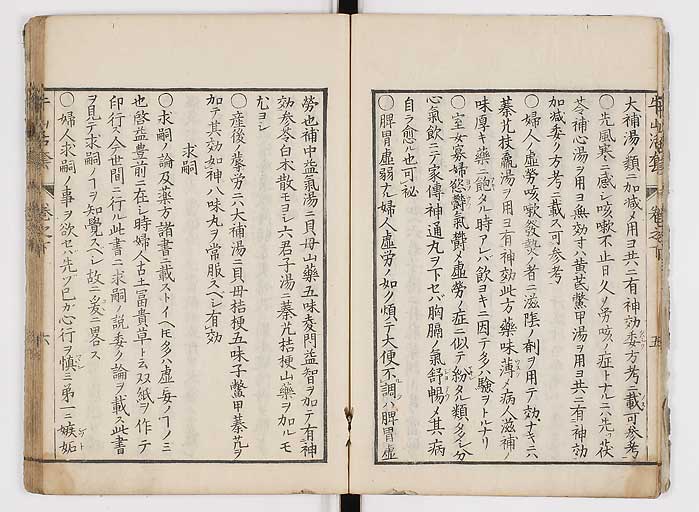 大補湯ノ類ニ加減メ用ヨ共ニ有神効委方考ニ載可参考
○先風寒ニ感シ咳嗽不止日久ノ労咳ノ症トナルニハ先ツ茯
苓補心湯ヲ用ヨ無効寸ハ黄芪鱉甲湯ヲ用ヨ共ニ有神効
加減委ク方考ニ載ス可参考
○婦人ノ虚労咳嗽發熱ノ者ニ滋陰ノ剤ヲ用テ効ナキニハ
秦艽扶羸湯ヲ用ヨ有神効此方薬味薄メ病人滋補ノ
味厚キ藥ニ飽タル時アレバ飲ヨキニ因テ多ハ驗ヲトルナリ
○室女寡婦慾鬱氣鬱メ虚労ノ症ニ似テ紛タル類多シ分
心氣飲ニテ家傳神通丸ヲ下セバ胸膈ノ氣舒暢メ其病
自ラ愈ル也可秘
○脾胃虚弱ナル婦人虚労ノ如ク煩テ大便不調ハ脾胃虚
労也補中益氣湯ニ貝母山藥五味麥門益智ヲ加テ有神
効参苓白朮散モヨシ六君子湯ニ秦艽桔梗山藥ヲ加ルモ
尤ヨシ
○産後ノ蓐労ニハ大補湯ニ貝母桔梗五味子鱉甲秦艽ヲ
加テ其効如神八味丸ヲ常服スベシ有効
求嗣
○求嗣ノ論及藥方諸書ニ載ストイヘ𪜈多ハ虚妄ノヿノミ
也啓益豊前ニ在シ時婦人古土冨貴草ト云双紙ヲ作テ
印行ス今世間ニ行ル此書ニ求嗣ノ説委ク論ヲ載ス此書
ヲ見テ求嗣ノヿヲ知覺スベシ故ニ爰ニ畧ス
○婦人求嗣ノ事ヲ欲セバ先ツ己カ心行ヲ慎ミ第一ニ嫉妬